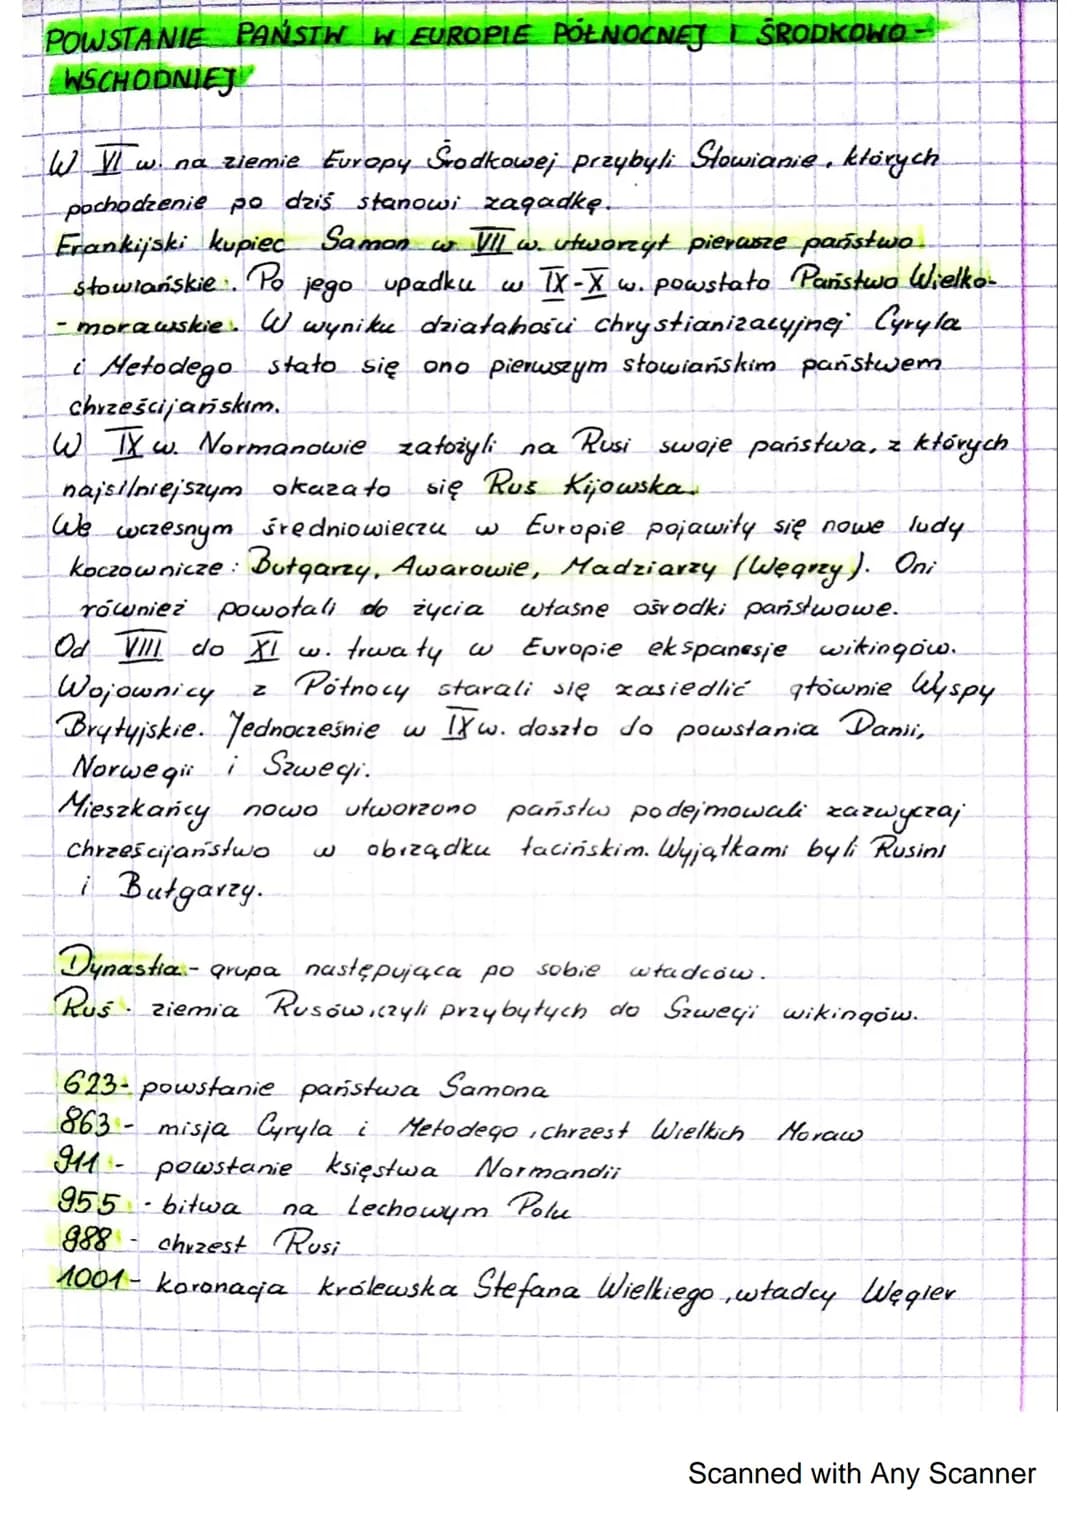 POWSTANIE PAŃSTW W EUROPIE PÓŁNOCNEJ I ŚRODKOWO-
WSCHODNIEJ
W VI w. na ziemie Europy Środkowej przybyli Słowianie, których
pochodzenie po dziś stanowi zagadkę.
Frankijski kupiec Samon w VII w. utworzył pierwsze państwo
słowiańskie. Po jego upadku w IX-X w. powstało Państwo Wielko-
-morawskie. W wyniku działalności chrystianizacyjnej Cyryla
i Metodego stało się ono pierwszym słowiańskim państwem
chrześcijańskim.
W IX w. Normanowie założyli na Rusi swoje państwa, z których
najsilniejszym okazało się Ruś Kijowska.
We wczesnym średniowieczu w Europie pojawiły się nowe ludy
koczownicze: Bułgarzy, Awarowie, Madziarzy (Węgrzy). Oni
również powołali do życia własne ośrodki państwowe.
Od VIII do XI w. trwały w Europie ekspanesje wikingów.
Wojownicy z Północy starali się zasiedlić głównie Wyspy
Brytyjskie. Jednocześnie w IX w. doszło do powstania Danii,
Norwegii i Szwecji.
Mieszkańcy nowo utworzono państw podejmowali zazwyczaj
chrześcijaństwo w obrządku łacińskim. Wyjątkami byli Rusini
i Bułgarzy.
Dynastia - grupa następująca po sobie władców.
Ruś - ziemia Rusów, czyli przybyłych do Szwecji wikingów.
623 - powstanie państwa Samona
863 - misja Cyryla i Metodego, chrzest Wielkich Moraw
911 - powstanie księstwa Normandii
955 - bitwa na Lechowym Polu
988 - chrzest Rusi
1001 - koronacja królewska Stefana Wielkiego, władcy Węgier
Scanned with Any Scanner